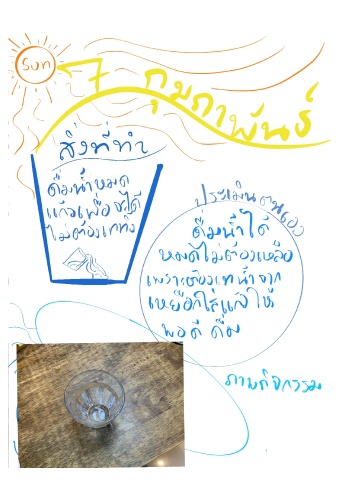 Sun
7 กุมภาพันธ์
สิ่งที่ทำ
ดื่มน้ำหมด
แก้วเพื่อจะได้
ไม่ต้องเททิ้ง
ประเมินตนเอง
ดื่มน้ำได้
หมดไม่ต้องเหลือ
เพราะต้องเทน้ำจาก
เหยือกใส่แก้วให้
พอดีดื่ม
ภาพกิจกรรม